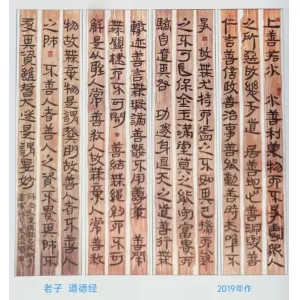 上善若水 水善利萬物而不爭處衆人
之所惡故幾於道 居善地心善淵與善
仁言善信政善治事善能動善時夫唯不
爭故無尤持而盈之不
之不可長保金玉滿堂莫之能守富貴而
驕自遺其咎 功遂身退天之道 善行無
轍迹善言無瑕謫善數不用籌策善閉
無關楗而不可開 善結無繩約而不可
解是以聖人常善救人故無棄人常善救
物故無棄物是謂襲明故善人者不善人
之師 不善人者善人之資不貴其師不
愛其資雖智大迷是謂要妙
老子 道德经
2019年作